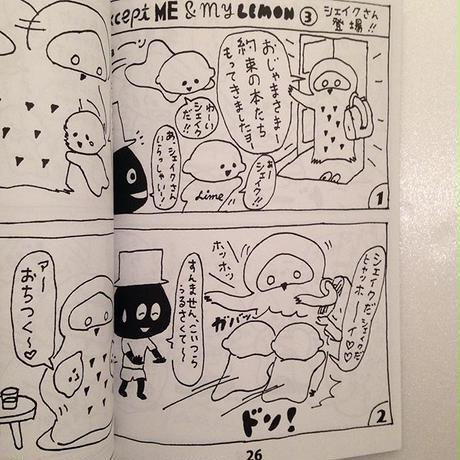 xcept ME & my LEMON ③ シェイクさん
登場!!
おじゃまさまー
約束の本たち
もってきましたョ
わーい
シェイク
だ!!
あ、シェイクさん
いらっしゃーい
Lime
わーい
シェイク!!
1
シェイクだシェイクだ
ヒャッホーーイ♡
ホッホッ
ホッホッ
すんません、こいつら
うるさくてー
ガバッ
ドン!
2
アー
おちつく〜♡
26